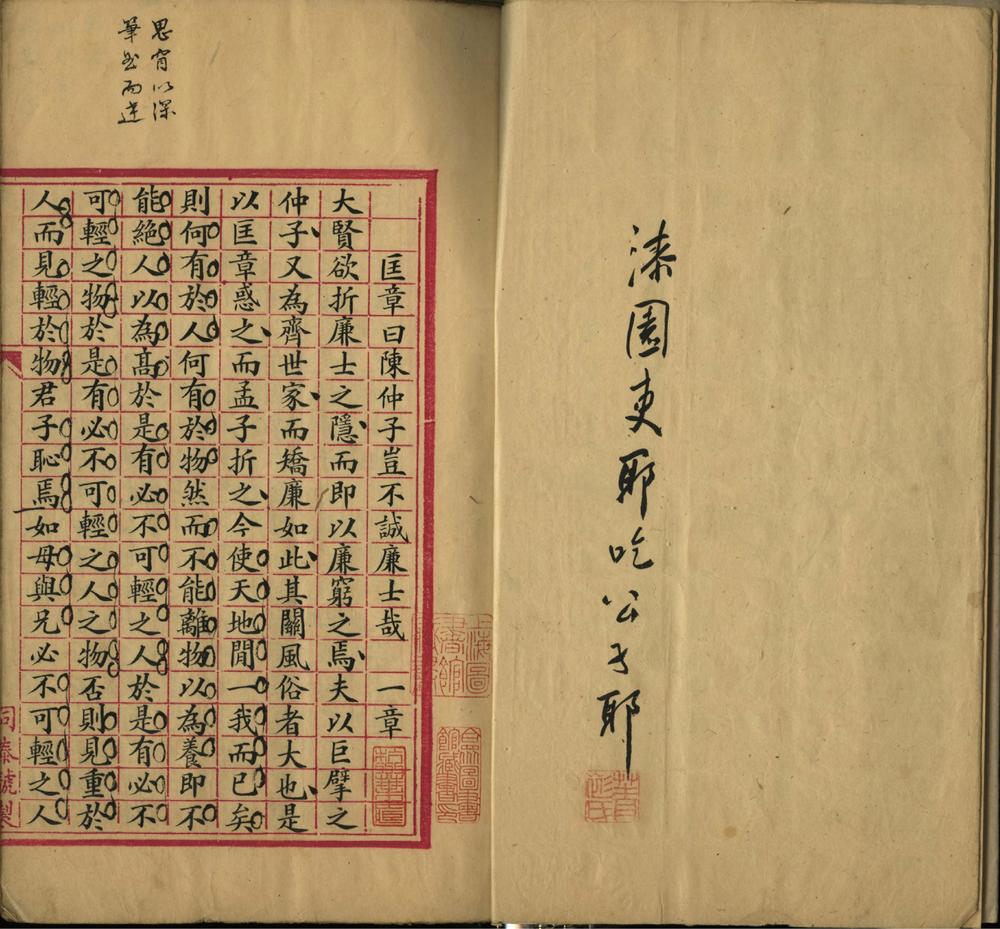 漆園吏耶吃公子耶
思窅以深
筆出而達
匡章曰陳仲子豈不誠廉士哉 一章
大賢欲折廉士之隱而即以廉窮之焉夫以巨擘之
仲子又為齊世家而矯廉如此其關風俗者大也是
以匡章惑之而孟子折之今使天地間一我而已矣
則何有於人何有於物然而不能離物以為養即不
能絕人以為高於是有必不可輕之人於是有必不
可輕之物於是有必不可輕之人之物否則見重於
人而見輕於物君子恥焉如母與兄必不可輕之人
同泰號製
上海圖書館藏